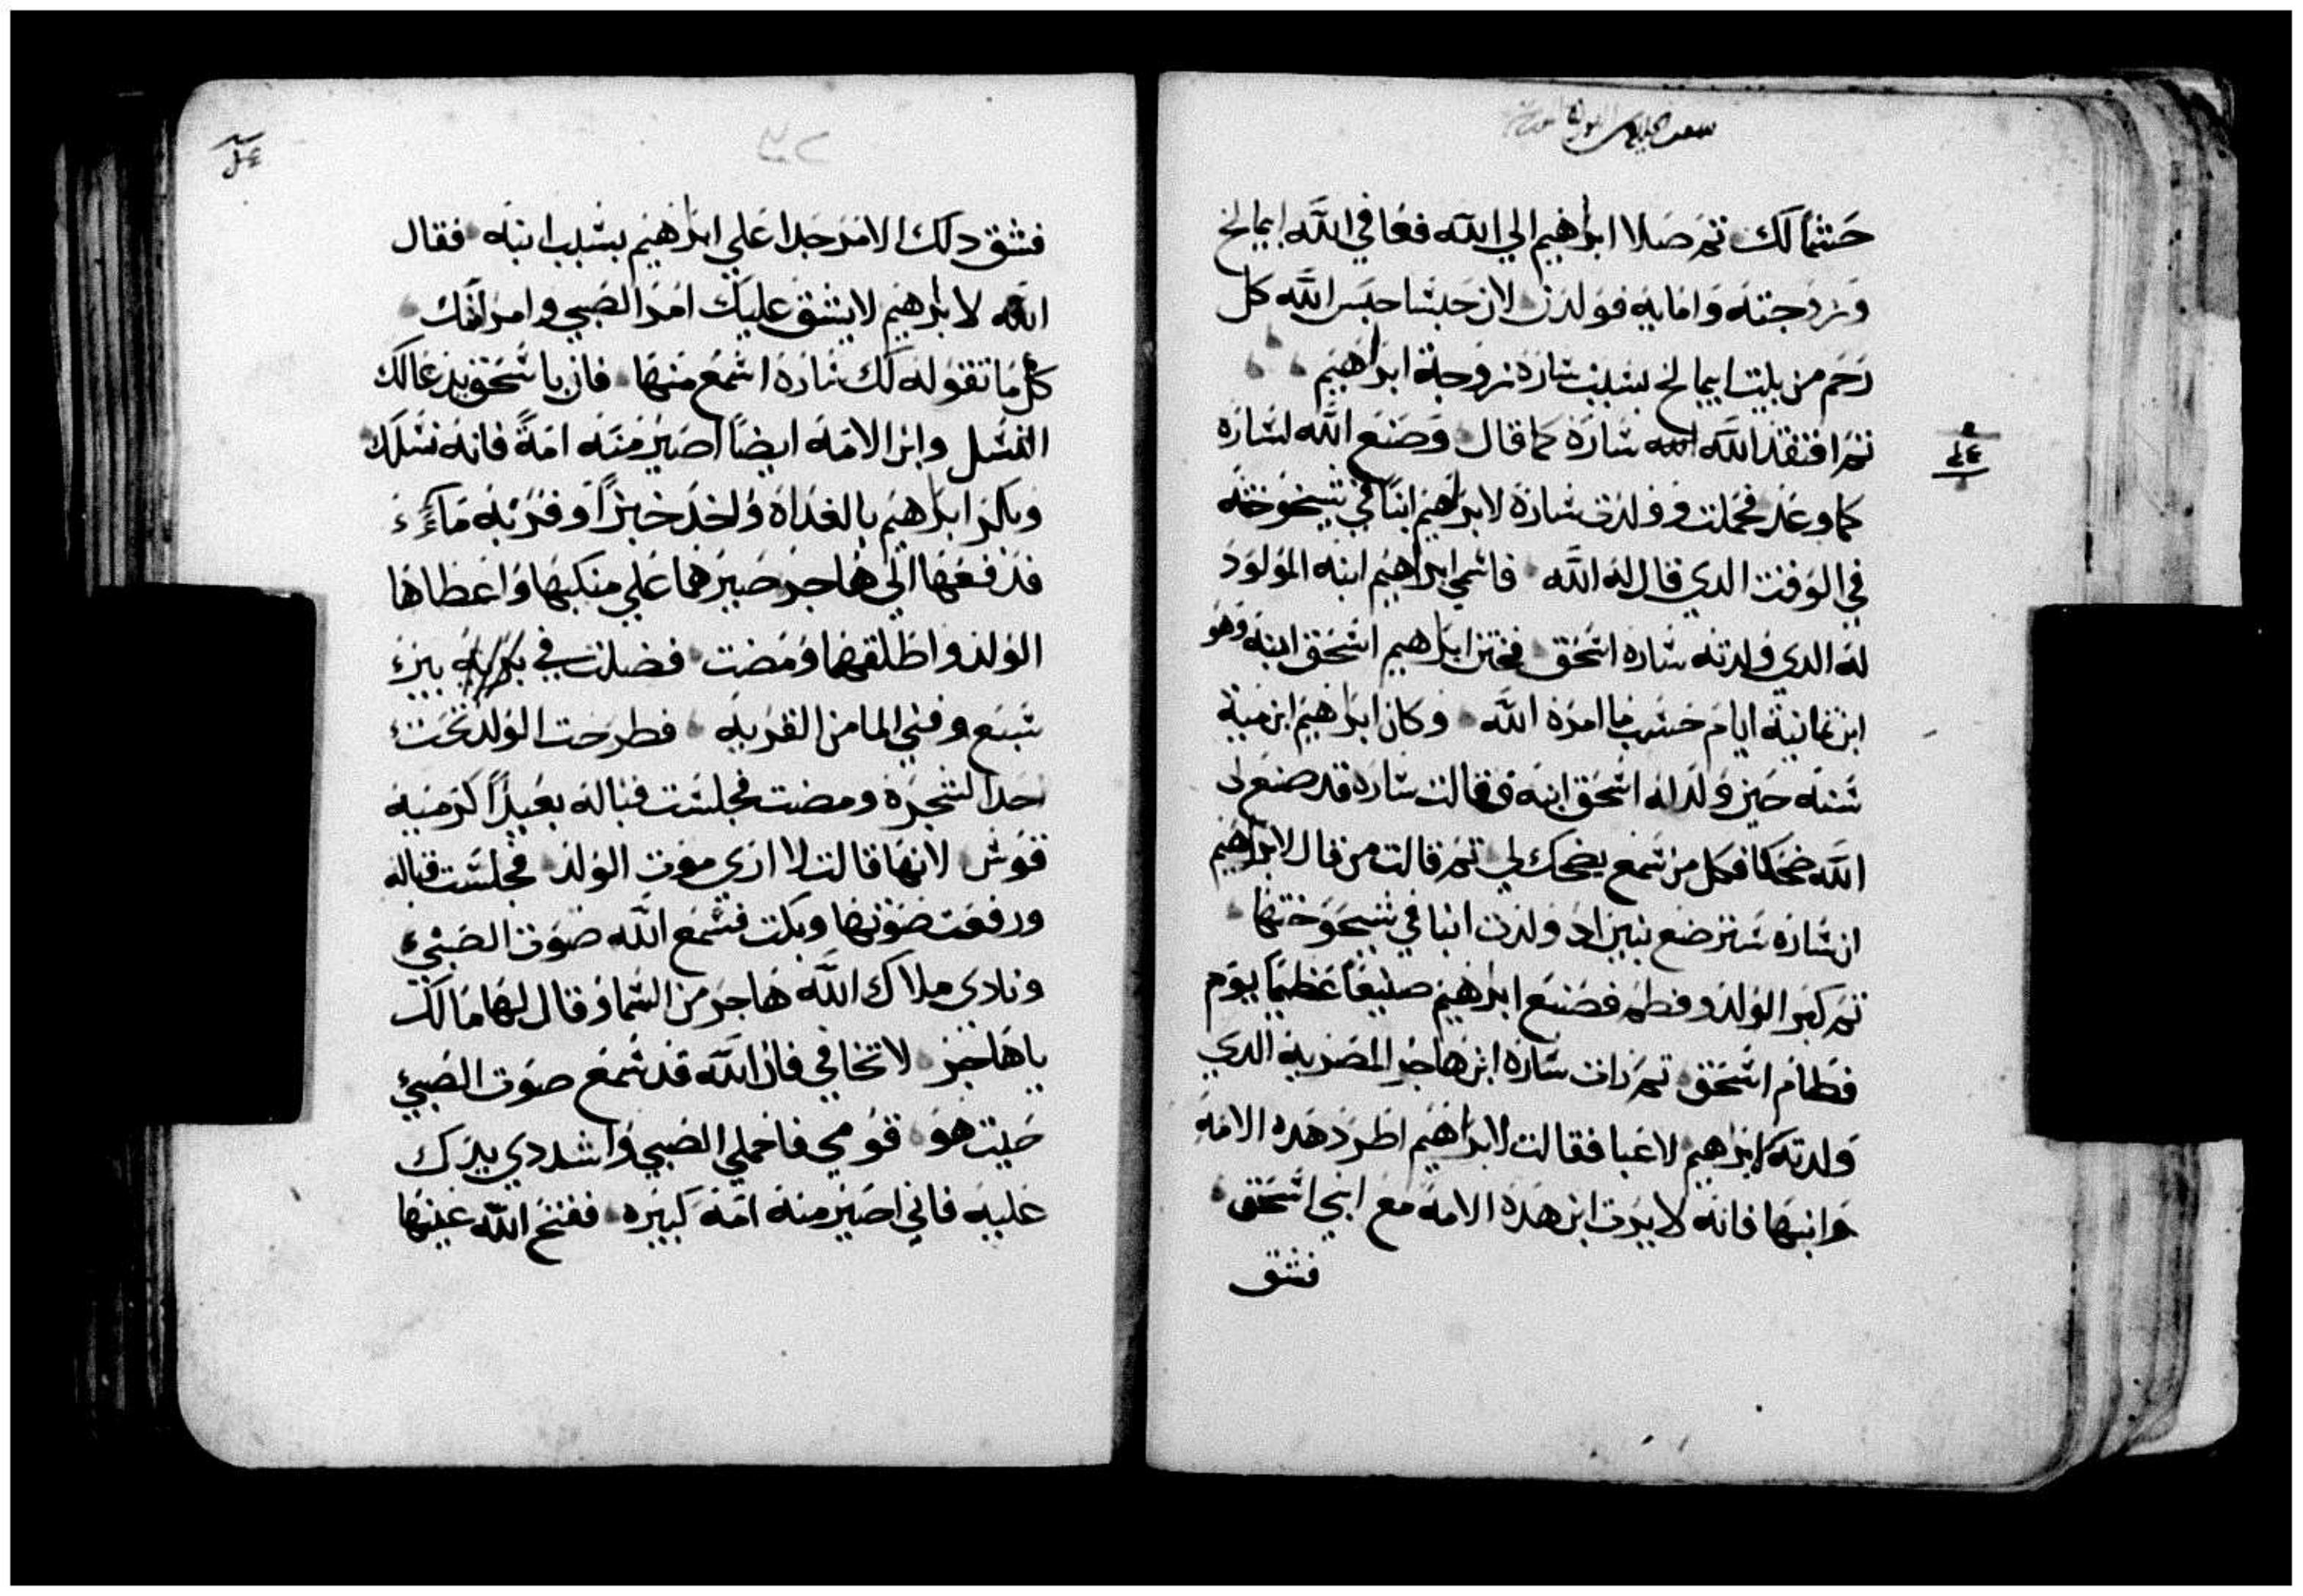 حشمالك تم صلا ابراهيم الي الله فعافي الله ابيمالخ
وزوجته وامايه فولدن لان حبسا حبس الله كل
رحم من بيت ابيمالخ بسبب ساره زوجة ابراهيم
تم افتقد الله ساره كما قال وصنع الله لساره
كما وعد فحملت وولدت ساره لابراهيم ابنا في شيخوخته
في الوقت الدي قال له الله فاسمي ابراهيم ابنه المولود
له الدي ولدته ساره اسحق فختن ابراهيم اسحق ابنه وهو
ابن تمانية ايام حسب ما امره الله وكان ابراهيم ابن مية
سنه حين ولد له اسحق ابنه فقالت ساره قد صنع لي
الله ضحكا فكل من سمع يضحك لي تم قالت من قال لابراهيم
ان ساره سترضع بنين اد ولدت ابنا في شيخوختها
تم كبر الولد وفطم فصنع ابراهيم صنيعا عظيما يوم
فطام اسحق تم رات ساره ابن هاجر المصريه الدي
ولدته لابراهيم لاعبا فقالت لابراهيم اطرد هده الامه
وابنها فانه لا يرت ابن هده الامه مع ابني اسحق
فشق
فشق دلك الامر جدا علي ابراهيم بسبب ابنه فقال
الله لابراهيم لا يشق عليك امر الصبي وامر امتك
كل ما تقوله لك ساره اسمع منها فان باسحق يدعا لك
النسل وابن الامه ايضا اصير منه امة فانه نسلك
وبكر ابراهيم بالغداه واخد خبزا وقربه ماء
فدفعها الي هاجر صيرهما علي منكبها واعطاها
الولد واطلقها ومضت فضلت في بريه بير
سبع وفني الما من القربه فطرحت الولد تحت
احدا لشجره ومضت فجلست قباله بعيدا كرمية
قوس لانها قالت لا اري موت الولد فجلست قباله
ورفعت صوتها وبكت فسمع الله صوت الصبي
ونادي ملاك الله هاجر من السما وقال لها مالك
ياهاجر لا تخافي فان الله قد سمع صوت الصبي
حيت هو قومي فاحملي الصبي واشددي يدك
عليه فاني اصير منه امه كبيره ففتح الله عينها